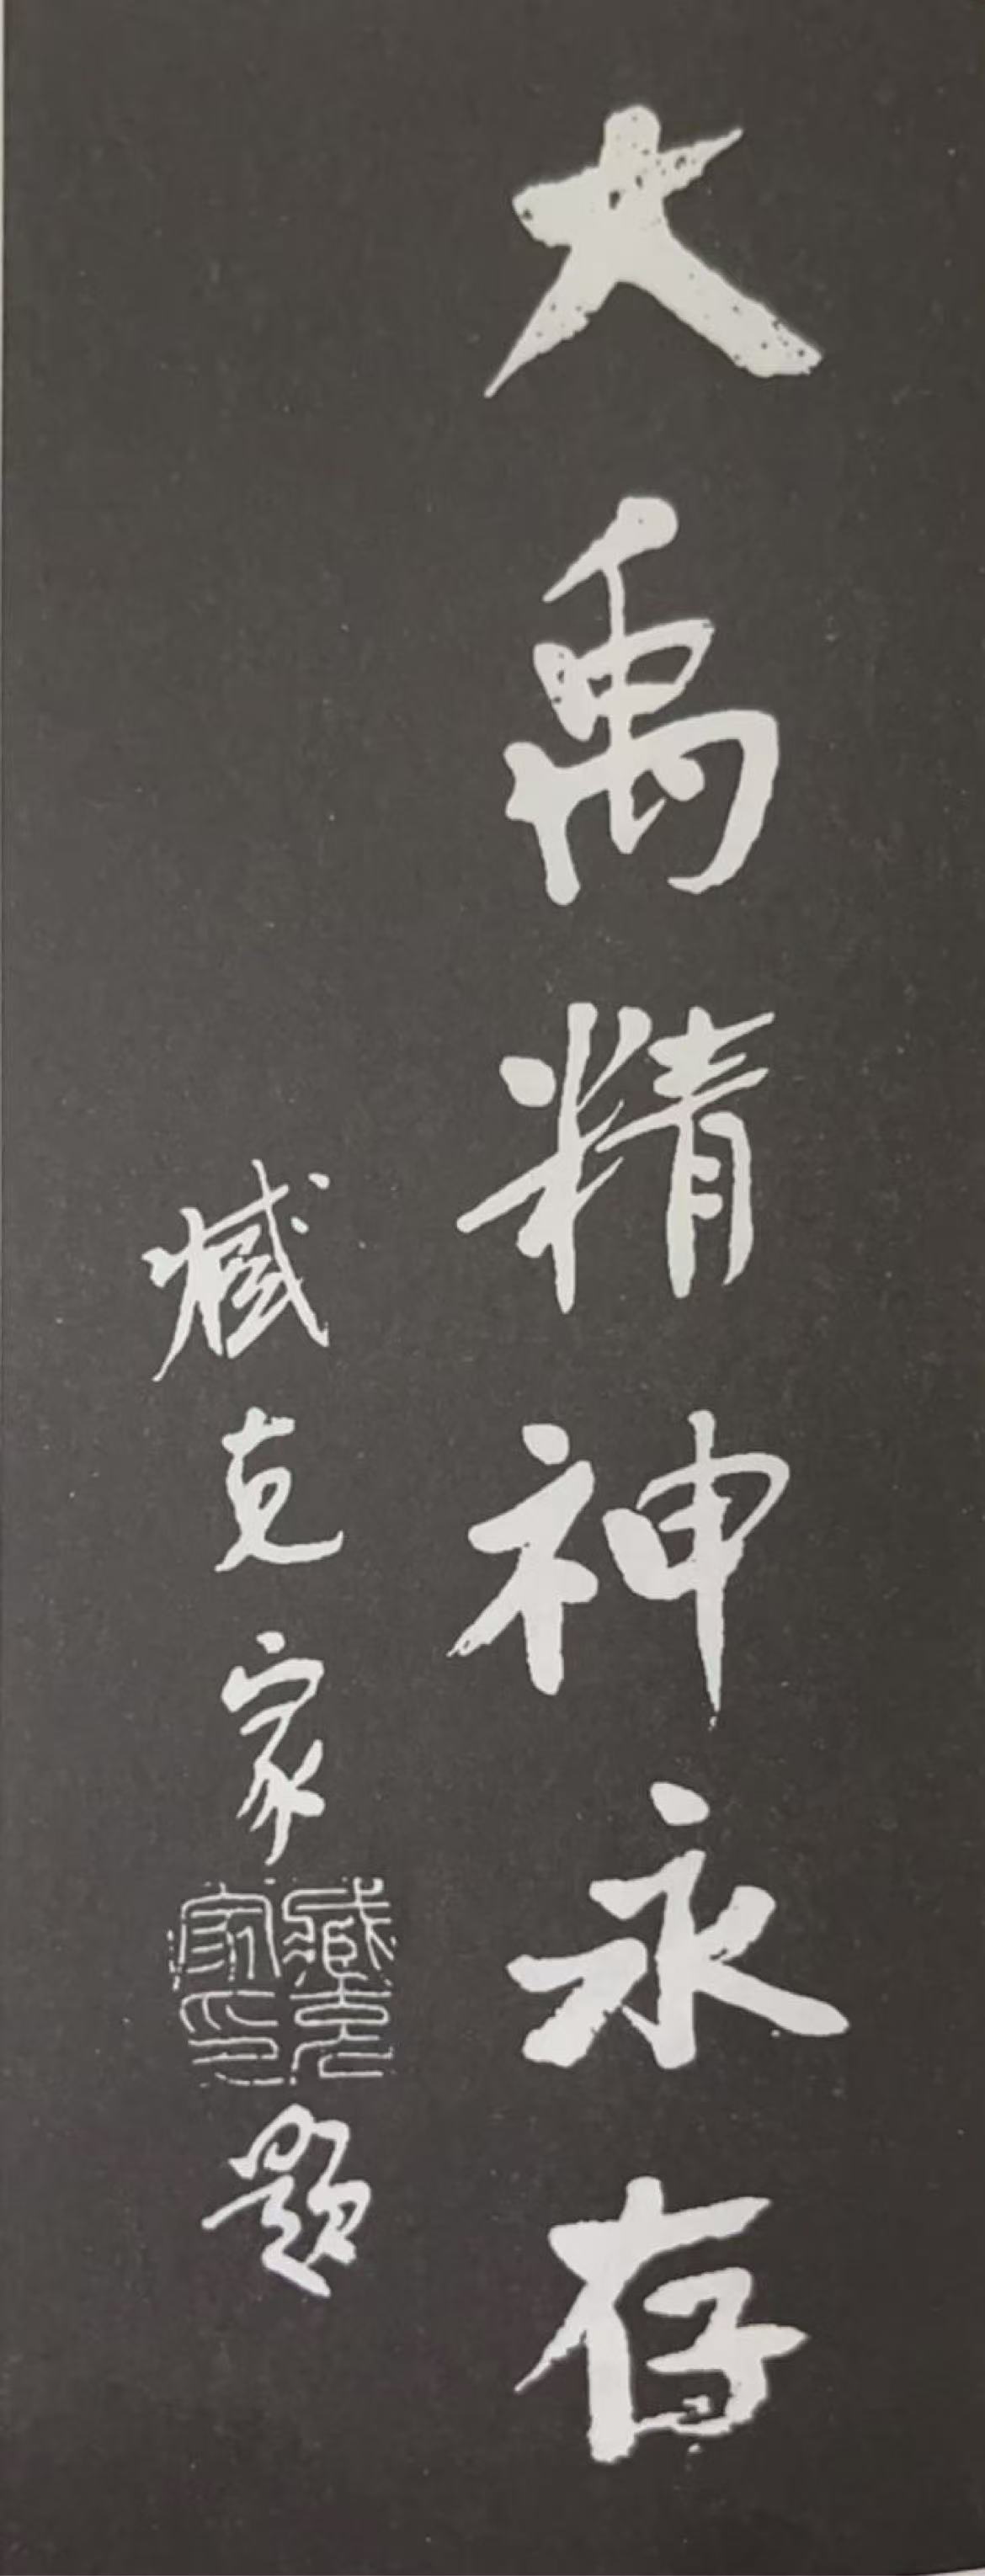 大禹精神永存
臧克家题
臧克家印